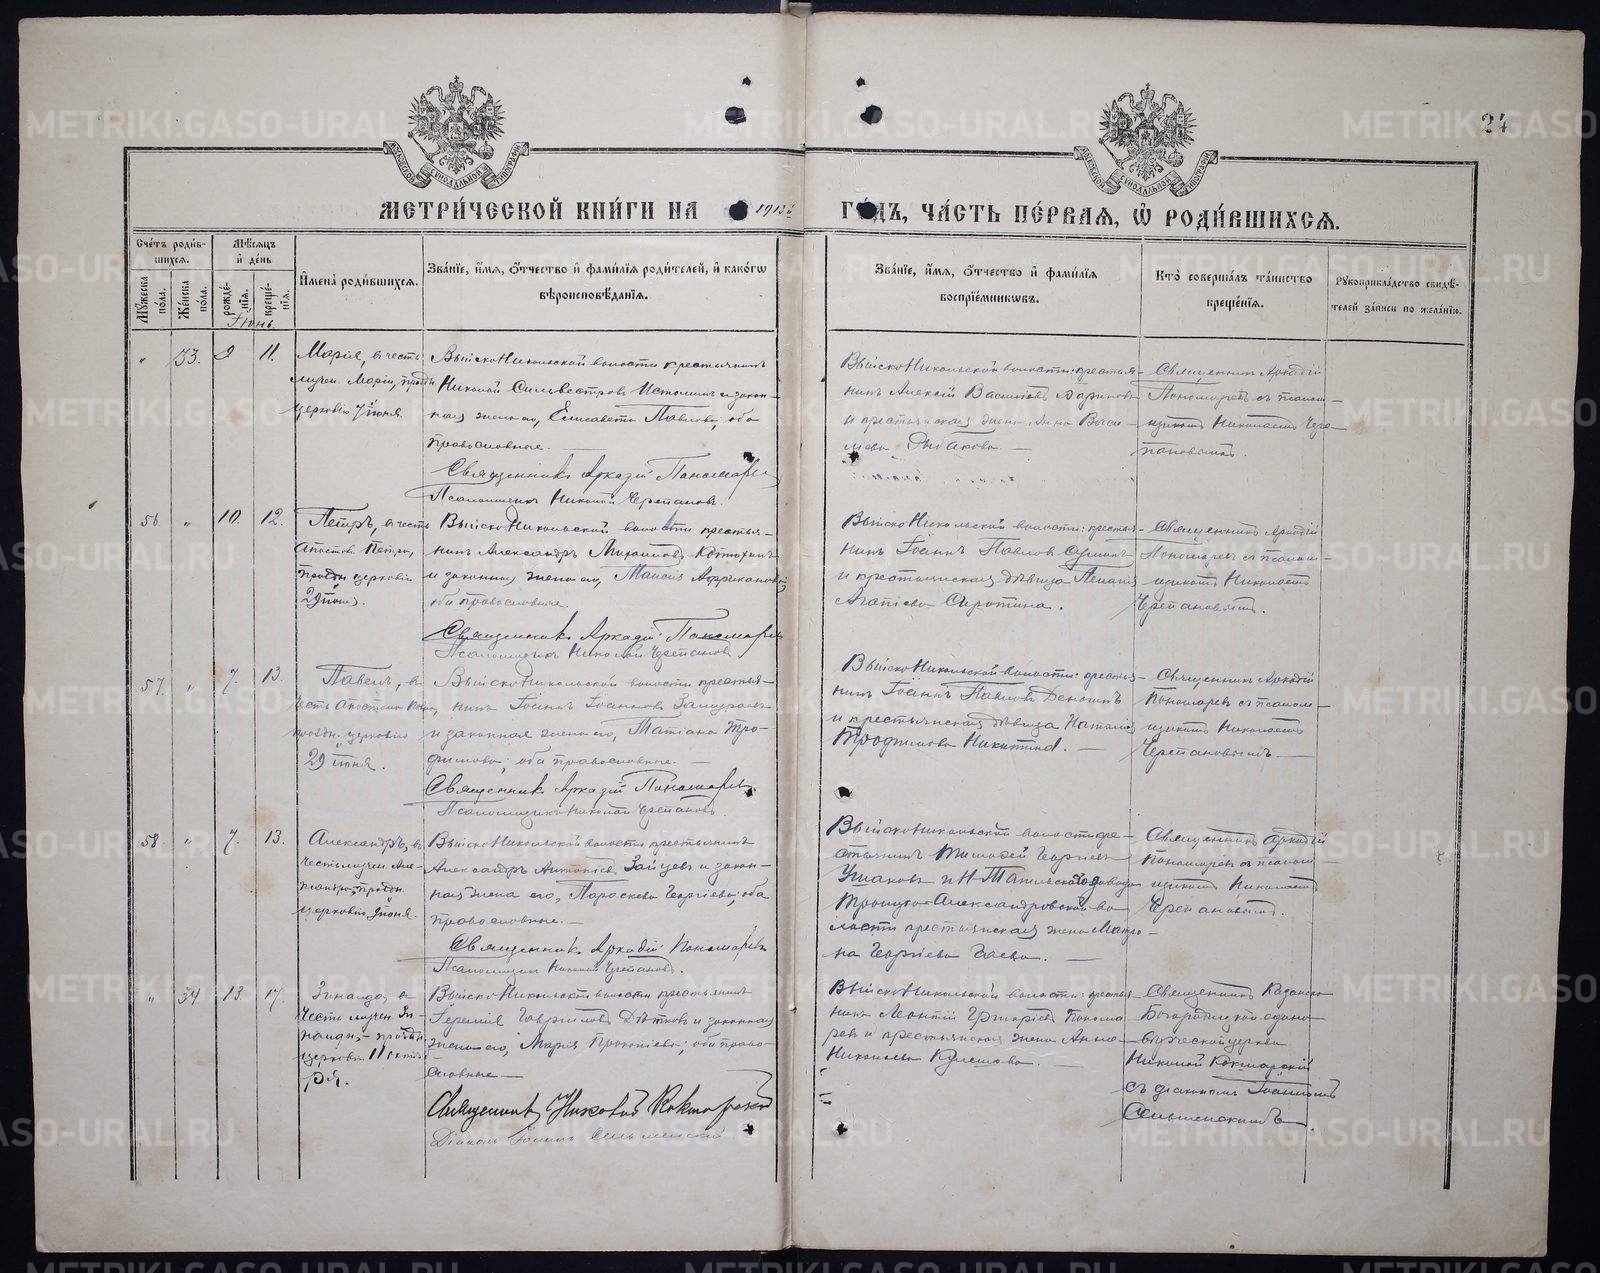 24
МЕТРИ́ЧЕСКОЙ КНИ́ГИ НА 1913й ГО́ДЪ, ЧА́СТЬ ПЕ́РВАЯ, Ѿ РОДИ́ВШИХСЯ.
Сче́тъ роди́в-
шихся.
Мꙋ́жеска
по́ла.
Же́нска
по́ла.
Мѣ́сяцъ
и҆ де́нь
рожде́-
нїя.
креще́-
нїя.
Іюнь.
И҆мена̀ роди́вшихся.
Зва́нїе, и҆́мя, ѻ҆́тчество и҆ фами́лїя роди́телей, и҆ како́гѡ
вѣроисповѣ́данїя.
Зва́нїе, и҆́мя, ѻ҆́тчество и҆ фами́лїя
воспрїе́мникѡвъ.
Кто̀ соверша́лъ та́инство
креще́нїя.
Рꙋкоприкла́дство свидѣ́-
телей за́писи по жела́нїю.
" 33. 9 11.
Марія, въ честь
мучен. Маріи, праздн.
церковію 7 іюня.
ВыйскоНикольской волости крестьянинъ
Николай Сильвестровъ Истоминъ и закон-
ная жена его, Елисавета Павлова; оба
православные.
Священникъ Аркадій Пономаревъ
Псаломщикъ Николай Черепановъ.
ВыйскоНикольской волости: крестья-
нинъ Алексій Васильевъ
и крестьянская жена Анна Васи-
льева Рыбакова.
Священникъ Аркадій
Пономаревъ съ псалом-
щикомъ Николаемъ Чере-
пановымъ.
56 " 10. 12.
Петръ, въ честь
Апостола Петра,
праздн. церковію
29 іюня.
ВыйскоНикольской волости крестья-
нинъ Александръ Михаиловъ Котюхинъ
и законная жена его, Таисія Африканова;
оба православные.
Священникъ Аркадій Пономаревъ
Псаломщикъ Николай Черепановъ
ВыйскоНикольской волости: крестья-
нинъ Іоаннъ Павловъ
и крестьянская дѣвица Пелагія
Агапіева Сиротина.
Священникъ Аркадій
Пономаревъ съ псалом-
щикомъ Николаемъ
Черепановымъ.
57. " 7. 13.
Павелъ, въ
честь Апостола Павла,
праздн. церковію
29 іюня.
ВыйскоНикольской волости крестья-
нинъ Іоаннъ Іоанновъ
и законная жена его, Татіана Тро-
фимова; оба православные.
Священникъ Аркадій Пономаревъ
Псаломщикъ Николай Черепановъ.
ВыйскоНикольской волости: крестья-
нинъ Іоаннъ Павловъ
и крестьянская дѣвица Наталія
Трофимова Никитина.
Священникъ Аркадій
Пономаревъ съ псалом-
щикомъ Николаемъ
Черепановымъ
58 " 7. 13.
Александръ, въ
честь мучен. Але-
ксандра, праздн.
церковію 9 іюня.
ВыйскоНикольской волости крестьянинъ
Александръ Антоніевъ Зайцевъ и закон-
ная жена его, Параскева Георгіева; оба
православные.
Священникъ Аркадій Пономаревъ
Псаломщикъ Николай Черепановъ.
ВыйскоНикольской волости кре-
стьянинъ Тимофей Георгіевъ
Ушаковъ и Н-Тагильскаго завода
Троицко-Александровской во-
лости крестьянская жена Матро-
на Георгіева
Священникъ Аркадій
Пономаревъ съ псалом-
щикомъ Николаемъ
Черепановымъ.
" 34 13. 17.
Зинаида, въ
честь мучен. Зи-
наиды, праздн.
церковію 11 октяб-
ря.
ВыйскоНикольской волости крестьянинъ
Іеремія Гавриловъ Дѣтковъ и законная
жена его, Марія Прокопіева; оба право-
славные
Священникъ Николай
Діаконъ Іоаннъ
ВыйскоНикольской волости: крестья-
нинъ Леонтій Григоріевъ Понома-
ревъ и крестьянская жена Анна
Николаева Кулешова.
Священникъ Казанско-
Богородицкой едино-
вѣрческой церкви
Николай
съ діакономъ Іоанномъ
METRIKI.GASO-URAL.RU